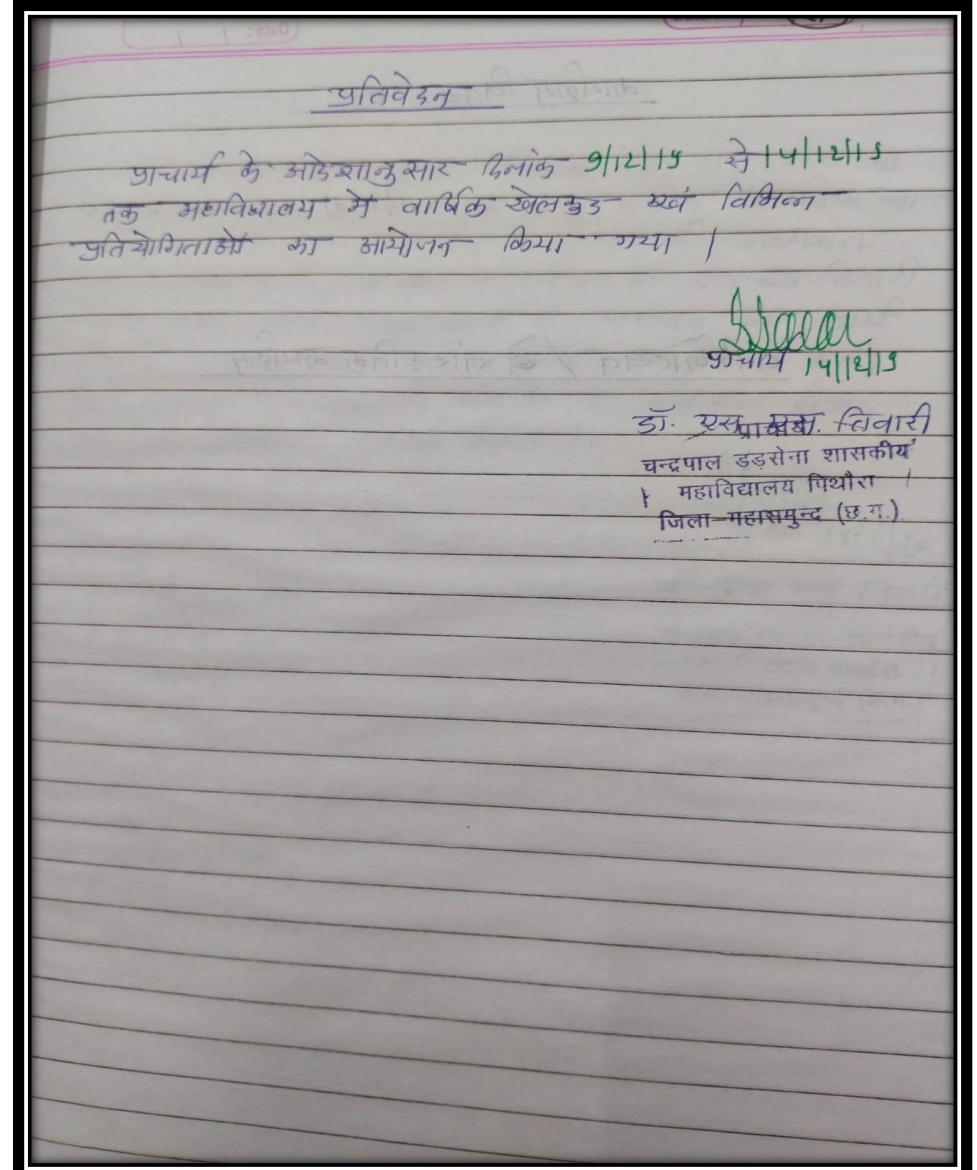 प्रतिवेदन
प्राचार्य के आदेशानुसार दिनांक 9/12/19 से 14/12/19
तक महाविद्यालय में वार्षिक खेलकुद एवं विभिन्न
प्रतियोगिताओं का आयोजन किया गया |
प्राचार्य 14/12/19
डॉ. एस. तिवारी
चन्द्रपाल डड़सेना शासकीय
महाविद्यालय पिथौरा
जिला-महासमुन्द (छ.ग.)